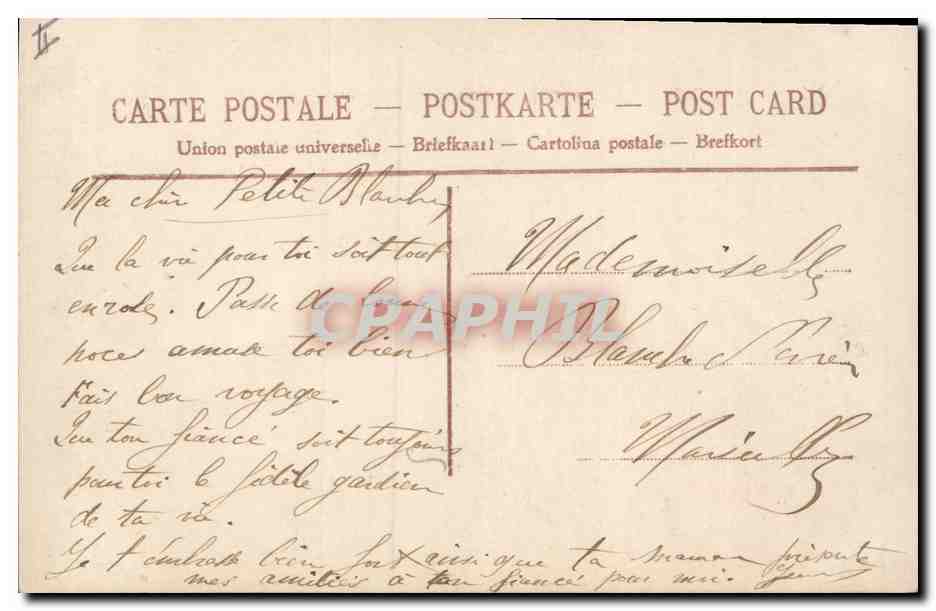 II
CARTE POSTALE — POSTKARTE — POST CARD
Union postale universelle — Briefkaart — Cartolina postale — Brefkort
Ma chèr Petite Blanche
Que la vie pour toi soit tout
en rose. Passe de bonnes
noces amuse toi bien
Fais bon voyage.
Que ton fiancé soit toujours
pour toi le fidèle gardien
de ta vie.
Je t'embrasse bien fort ainsi que ta maman présente
mes amitiés à ton fiancé pour moi.
Mademoiselle
Blanche
Marseille
CPAPHIL